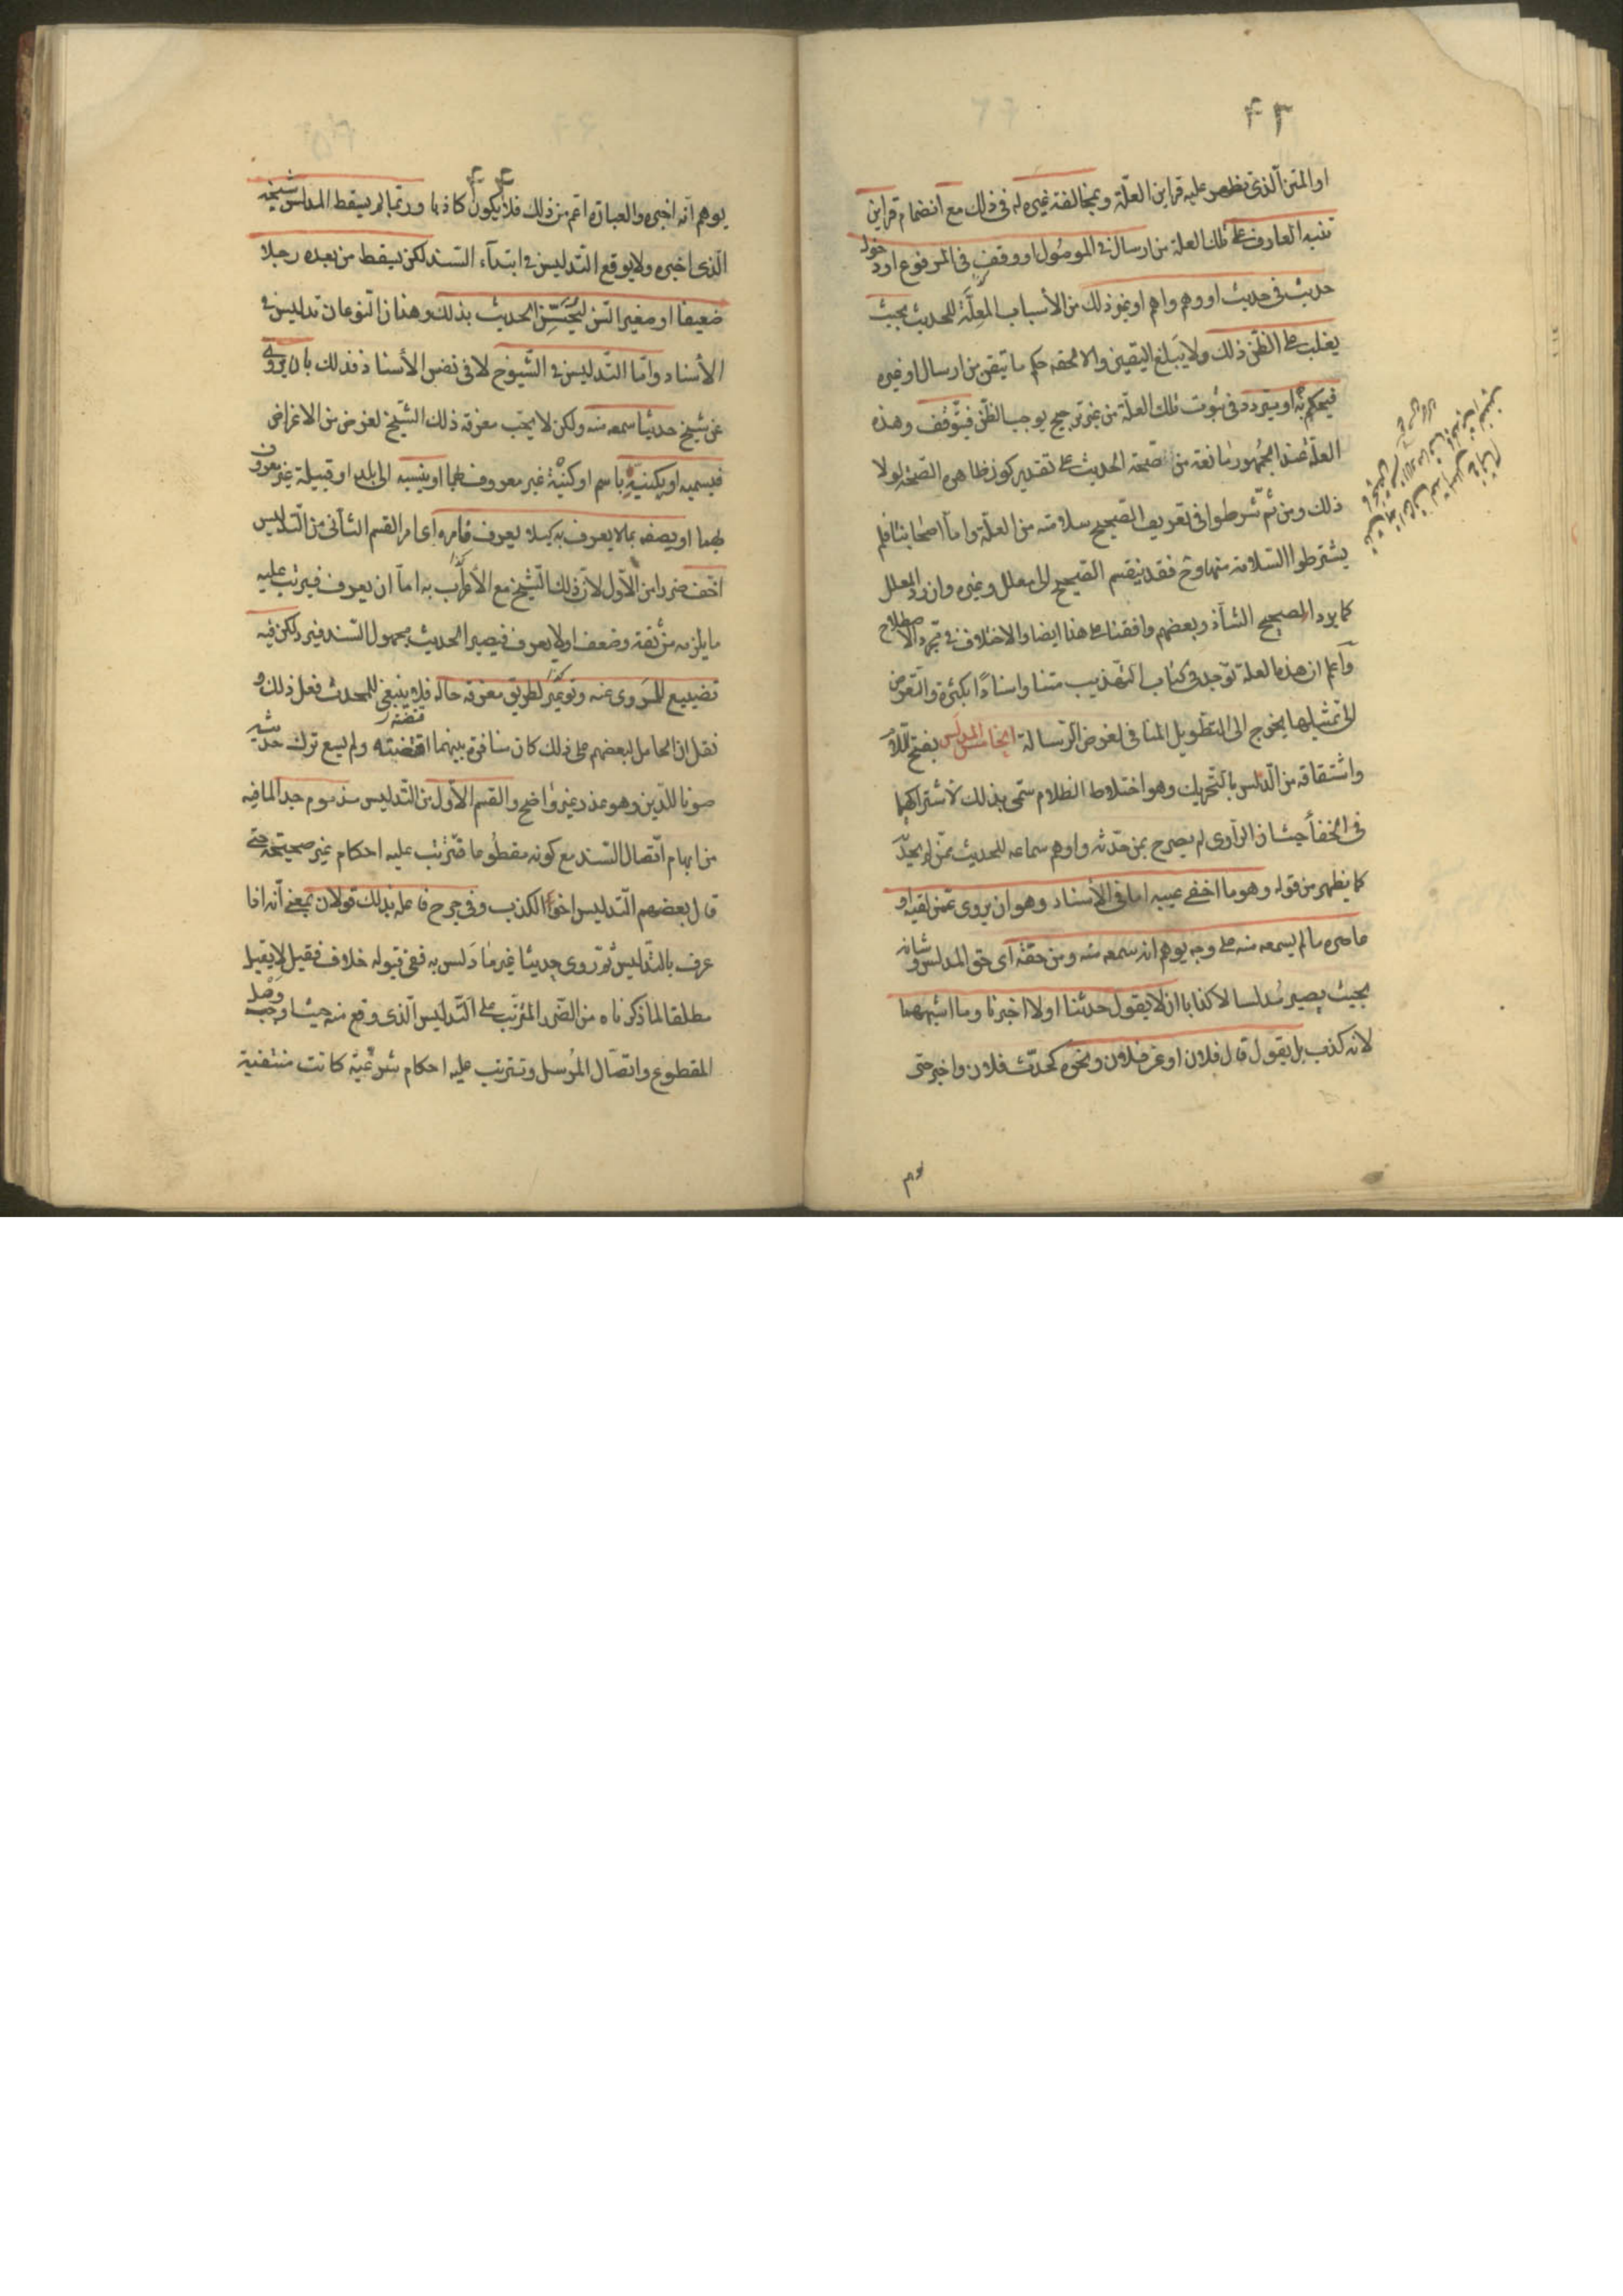 ۴۳
او المتن الذى تظهر عليه قراين العلّة و بمخالفة غيره له فى ذلك مع انضمام قراين
تنبه العارف على تلك العلة من ارسال فى الموصول او وقف فى المرفوع او دخول
حديث فى حديث او وهم واهم او نحو ذلك من الأسباب المعلّة للحديث بحيث
يغلب على الظنّ ذلك ولا يبلغ اليقين والا لحقه حكم ما تيقن من ارسال او غيره
فيحكم به او يتردد فى ثبوت تلك العلّة من غير ترجيح يوجب الظنّ فيتوقف وهذه
العلّة عند الجمهور مانعة من صحة الحديث على تقدير كون ظاهره الصّحة لولا
ذلك ومن ثم شرطوا فى تعريف الصّحيح سلامته من العلّة واما اصحابنا فلم
يشترطوا السّلامة منها وح فقد ينقسم الصّحيح الى معلل وغيره وان رد المعلل
كما يرد الصحيح الشاذ وبعضهم وافقنا على هذا ايضا والاختلاف فى مجرد الاصطلاح
واعلم ان هذه العلة توجد فى كتاب التهذيب متنا واسنادا بكثرة والتعرض
الى تمثيلها يخرج الى التطويل المنافى لغرض الرّسالة الخامس المدلَّس بفتح اللام
واشتقاقه من الدلس بالتّحريك وهو اختلاط الظلام سمّى بذلك لاشتراكهما
فى الخفأ حيث ان الراوى لم يصرح بمن حدّثه واوهم سماعه للحديث ممن لم يحدّثه
كما يظهر من قوله وهو ما اخفى عيبه اما فى الأسناد وهو ان يروى عمّن لقيه او
عاصره ما لم يسمعه منه على وجه يوهم انه سمعه منه ومن حقه اى حق المدلس وشانه
بحيث يصير مدلسا لا كذابا ان لا يقول حدثنا او لا اخبرنا وما اشبههما
لانه كذب بل يقول قال فلان او عن فلان ونحوه كحدّث فلان واخبر حتى
۴۴
يوهم انّه اخبره والعبارة اعم من ذلك فلا يكون كاذبا وربّما لم يسقط المدلس شيخه
الّذى اخبره ولا يوقع التدليس فى ابتدآء السّند لكن يسقط من بعده رجلا
ضعيفا او صغير السّن ليُحَسِّن الحديث بذلك وهذان النّوعان تدليس فى
الأسناد وامّا التّدليس فى الشّيوخ لا فى نفس الأسناد فذلك بان يروى
عن شيخ حديثا سمعه منه ولكن لا يحب معرفة ذلك الشّيخ لغرض من الاغراض
فيسميه او يكنيه باسم او كنية غير معروف بهما او ينسبه الى بلد او قبيلة غير معروف
بهما او يصفه بما لا يعرف به كيلا يعرف فامره اى امر القسم الثانى من التّدليس
اخّف ضررا من الأول لانّ ذلك الشّيخ مع الأغراب به اما ان يعرف فيرتب عليه
ما يلزمه من ثقة وضعف او لا يعرف فيصير الحديث مجهول السّند فيرد لكن فيه
تضييع للمروى عنه وتوعير لطريق معرفة حاله فلا ينبغى للمحدث فعل ذلك و
نقل ان الحامل لبعضهم على ذلك كان منافرة بينهما اقتضته ولم يسع ترك حديثه
صونا للدّين وهو عذر غير واضح والقسم الأول من التّدليس مذموم جدا لما فيه
من ايهام اتّصال السّند مع كونه مقطوعا فتترتب عليه احكام غير صحيحة حتى
قال بعضهم التّدليس اخو الكذب وفى جرح فاعله بذلك قولان بمعنى أنه اذا
عرف بالتّدليس ثم روى حديثا غير ما دَلس به ففى قبوله خلاف فقيل لا يقبل
مطلقا لما ذكرناه من الضّرر المترتّب على التّدليس الّذى وقع منه حيث اوجب وصل
المقطوع واتصال المرسل وتترتب عليه احكام شرعيّة كانت منتفية